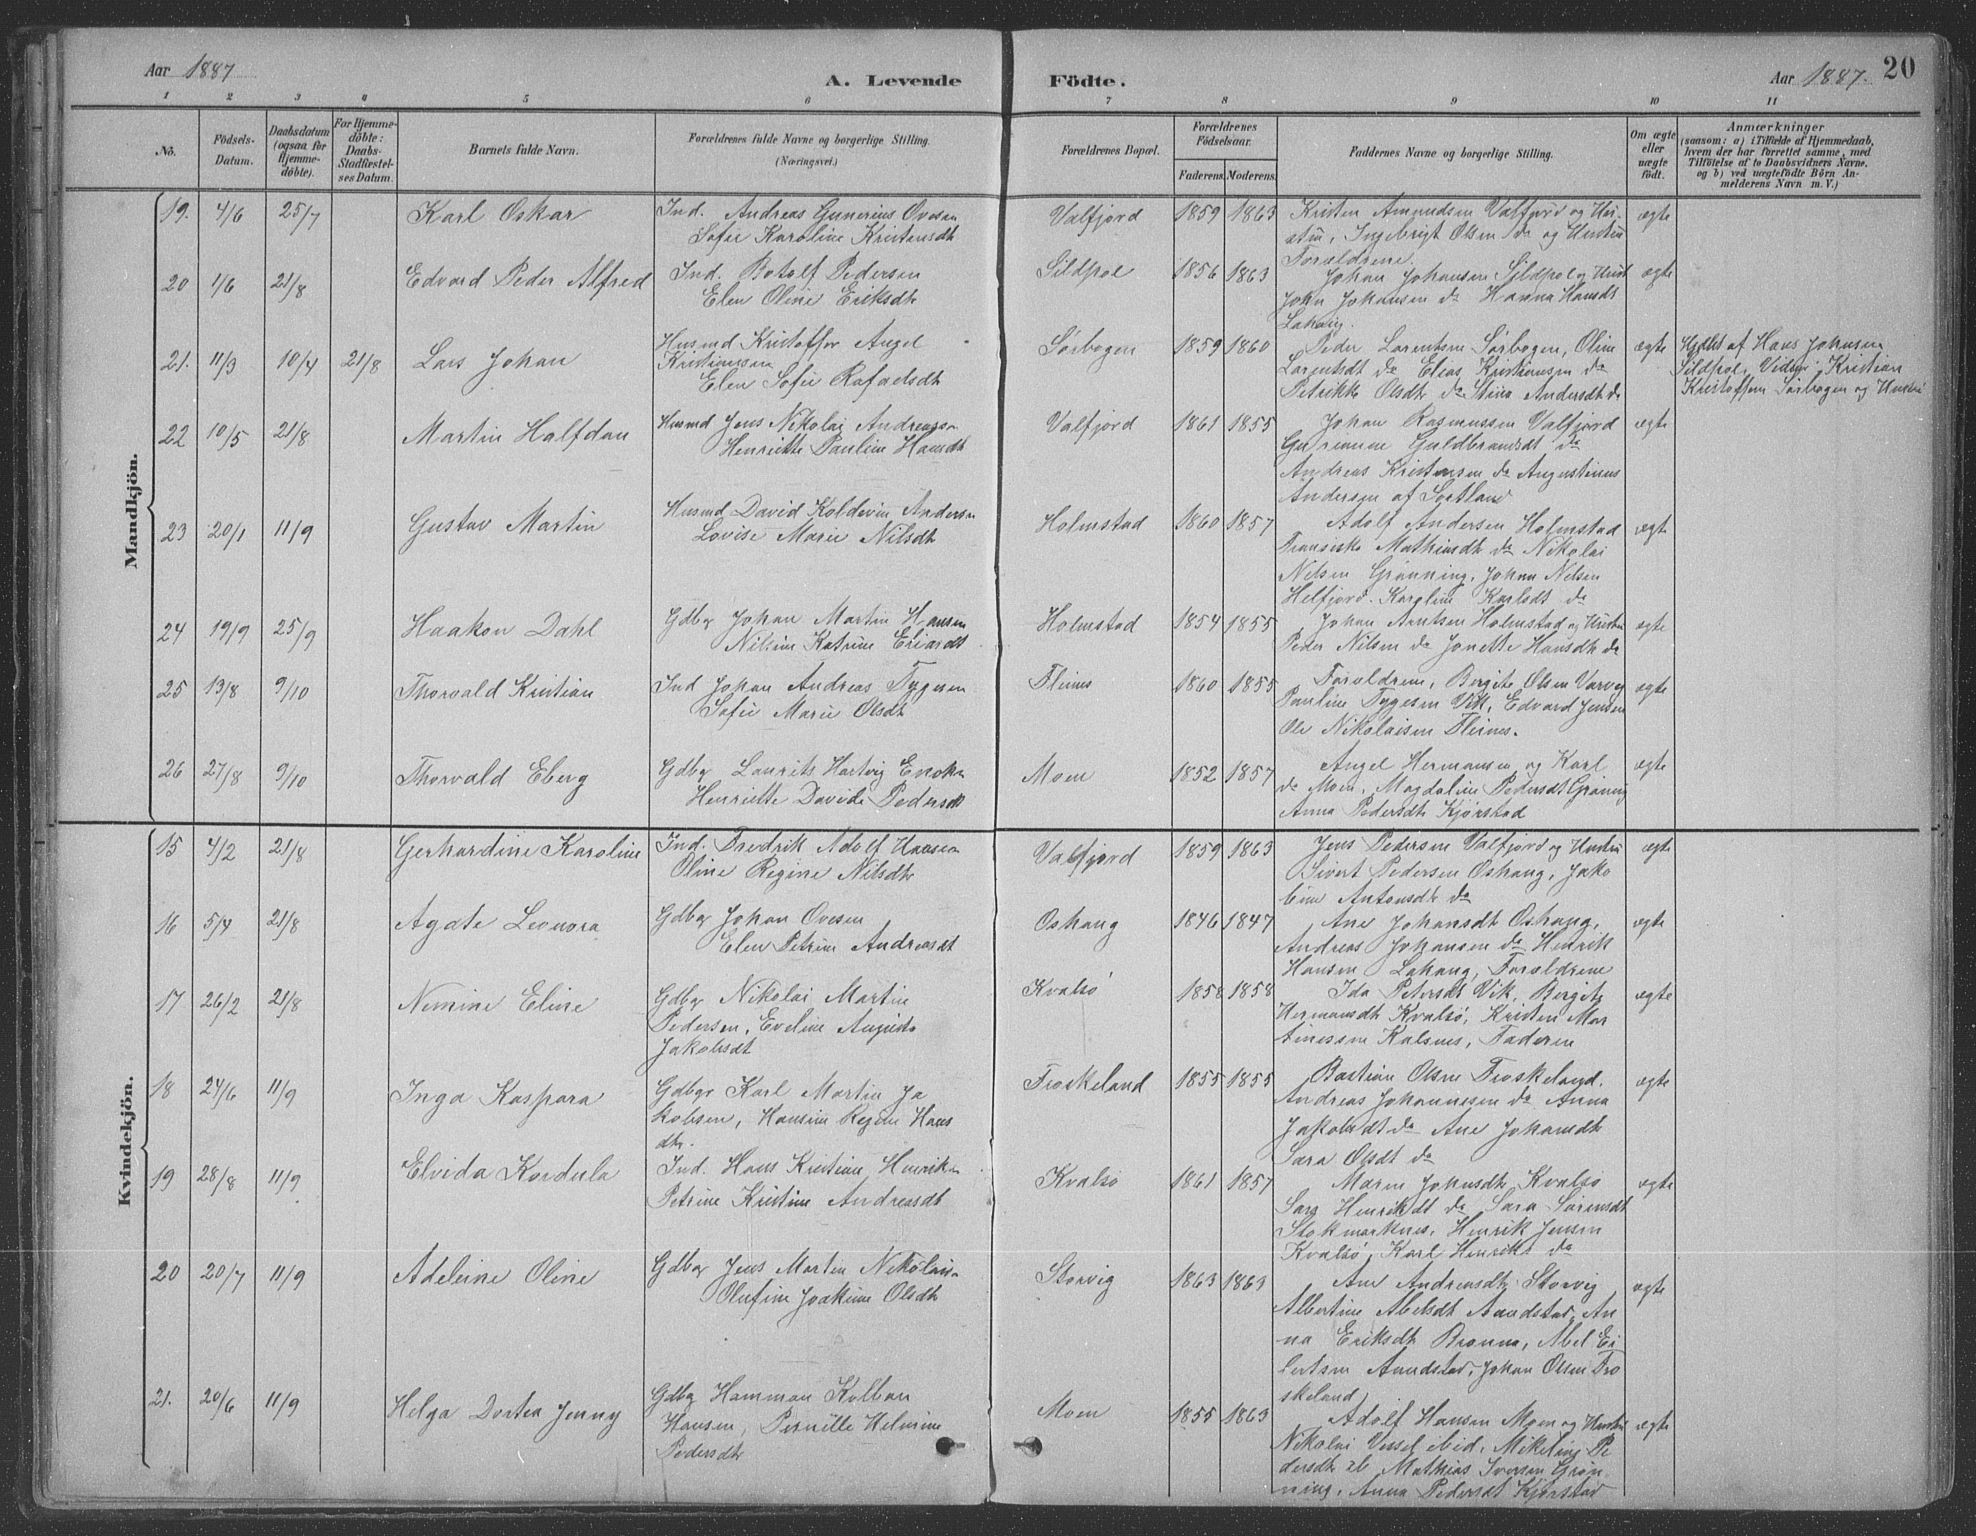 Aar 1887
A. Levende
Födte.
Aar 1887.
20
1 2 3 4 5 6 7 8 9 10 11
No.
Födsels-
Datum.
Daabsdatum
(ogsaa for
Hjemme-
döbte).
For Hjemme-
döbte:
Daabs-
Stadfæstel-
ses Datum.
Barnets fulde Navn.
Forældrenes fulde Navne og borgerlige Stilling.
(Næringsvei.)
Forældrenes Bopæl.
Forældrenes
Födselsaar.
Faderens. Moderens.
Faddernes Navne og borgerlige Stilling.
Om ægte
eller
uægte
födt.
Anmærkninger
(saasom: a) i Tilfælde af Hjemmedaab,
hvem der har forrettet samme, med
Tilföielse af to Daabsvidners Navne,
og b) ved uægtefödte Börn An-
melderens Navn m. V.)
Mandkjön.
19. 4/6 25/7 Karl Oskar
Ind. Andreas Gunerius Ovesen
Sofie Karoline Kristensdt
Valfjord 1859 1863
Kristen Amundsen Valfjord og Hu-
stru, Ingebrigt Olsen do og Hustru
Forældrene.
ægte
20 1/6 21/8 Edvard Peder Alfred
Ind. Botolf Pedersen
Elen Oline Eriksdt
Sildpol 1856 1863
Johan Johansen Sildpol og Hust
John Johansen do Hanna Hansdt
Lahaug.
ægte
21. 11/3 10/4 21/8 Lars Johan
Husmd Kristoffer Angel
Kristiansen
Elen Sofie Rafaelsdt
Sørbogen 1859 1860
Peder Lorentsen Sørbogen, Oline
Lorentsdt do Elias Kristiansen do
Petrikke Olsdt do Stina Andersdt do
ægte
Hjdbt af Hans Johnsen
Sildpol, Vidner Kristian
Kristoffersen Sørbogen og Hustru
22 10/5 21/8 Martin Halfdan
Husmd Jens Nikolai Andreassen
Henriette Pauline Hansdt
Valfjord 1861 1855
Johan Rasmussen Valfjord
Guldbrandsdt do
Andreas Kristensen do Augustinus
Andersen af Sortland
ægte
23 20/1 11/9 Gustav Martin
Husmd David Koldevin Andersen
Lovise Marie Nilsdt
Holmstad 1860 1857
Adolf Andersen Holmstad
Fransiska Mathiasdt do Nikolai
Nilsen Grønning, Johan Nilsen
Helfjord. Karoline Karlsdt do
ægte
24 19/9 25/9 Haakon Dahl
Gdbgr Johan Martin Hansen
Nilsine Katrine
Holmstad 1854 1855
Johan Arntsen Holmstad og Hustru
Peder Nilsen do Jonette Hansdt do
ægte
25 13/8 9/10 Thorvald Kristian
Ind Johan Andreas Tygesen
Sofie Marie Olsdt
Fleines 1860 1855
Forældrene, Bergite Olsen
Pauline Tygesen Vik, Edvard Jensen
Ole Nikolaisen Fleines.
ægte
26 27/8 9/10 Thorvald Eberg
Gdbgr Laurits Hartvig
Henriette Davida Pedersdt
Moen 1852 1857
Angel Hermansen og Karl
do Moen. Magdaline Pedersdt Grøning
Anna Pedersdt Kjørstad
ægte
Kvindekjön.
15 4/2 21/8 Gerhardine Karoline
Ind. Fredrik Adolf Hansen
Oline Regine Nilsdt
Valfjord 1859 1863
Jens Pedersen Valfjord og Hustru
Sivert Pedersen Oshaug, Jako
bine Antonsdt do
ægte
16 5/4 21/8 Agate Leonora
Gdbgr Johan Ovesen
Elen Petrine Andreasdt
Oshaug 1846 1847
Ane Johansdt Oshaug,
Andreas Johansen do Henrik
Hansen Lahaug, Forældrene
ægte
17 26/2 21/8 Nemine Eline
Gdbgr Nikolai Martin
Pedersen, Eveline Augusta
Jakobsdt
Kvalsø 1858 1858
Ida Petersdt Vik, Bergite
Hermansdt Kvalsø, Kristen Mar
tinessen Kalsnes, Faderen
ægte
18 24/6 11/9 Inga Kaspara
Gdbgr Karl Martin Ja
kobsen, Hansine Regine Hans
dtr.
Froskeland 1855 1855
Bastian Olsen Froskeland,
Andreas Johannessen do Anna
Jakobsdt do Ane Johansdt
Sara Olsdt do
ægte
19 28/8 11/9 Elvida Kordula
Ind. Hans Kristian Henriksen
Petrine Kristine Andreasdt
Kvalsø 1861 1857
Maren Johnsdt Kvalsø
Sara Henriksdt do Sara Sørensdt
Stokmarknes, Henrik Jensen
Kvalsø, Karl Henriks do
ægte
20 20/7 11/9 Adeleine Oline
Gdbgr Jens Martin Nikolaisen
Olufine Joakime Olsdt
Storvig 1863 1863
Ane Andreasdt Storvig
Albertine Abelsdt Aandstad, An
na Eriksdt Brønna, Abel Ei
lertsen Aandstad, Johan Olsen Fro
skeland
ægte
21. 20/6 11/9 Helga Dortea Jenny
Gdbgr Hamman Kolban
Hansen, Pernille Helmine
Pedersdt
Moen 1855 1863
Adolf Hansen Moen og Hustru
Nikolai Vessel ibid, Mikeline Pe
dersdt ib Mathias Iversen Grøn
ning, Anna Pedersdt Kjørstad
ægte